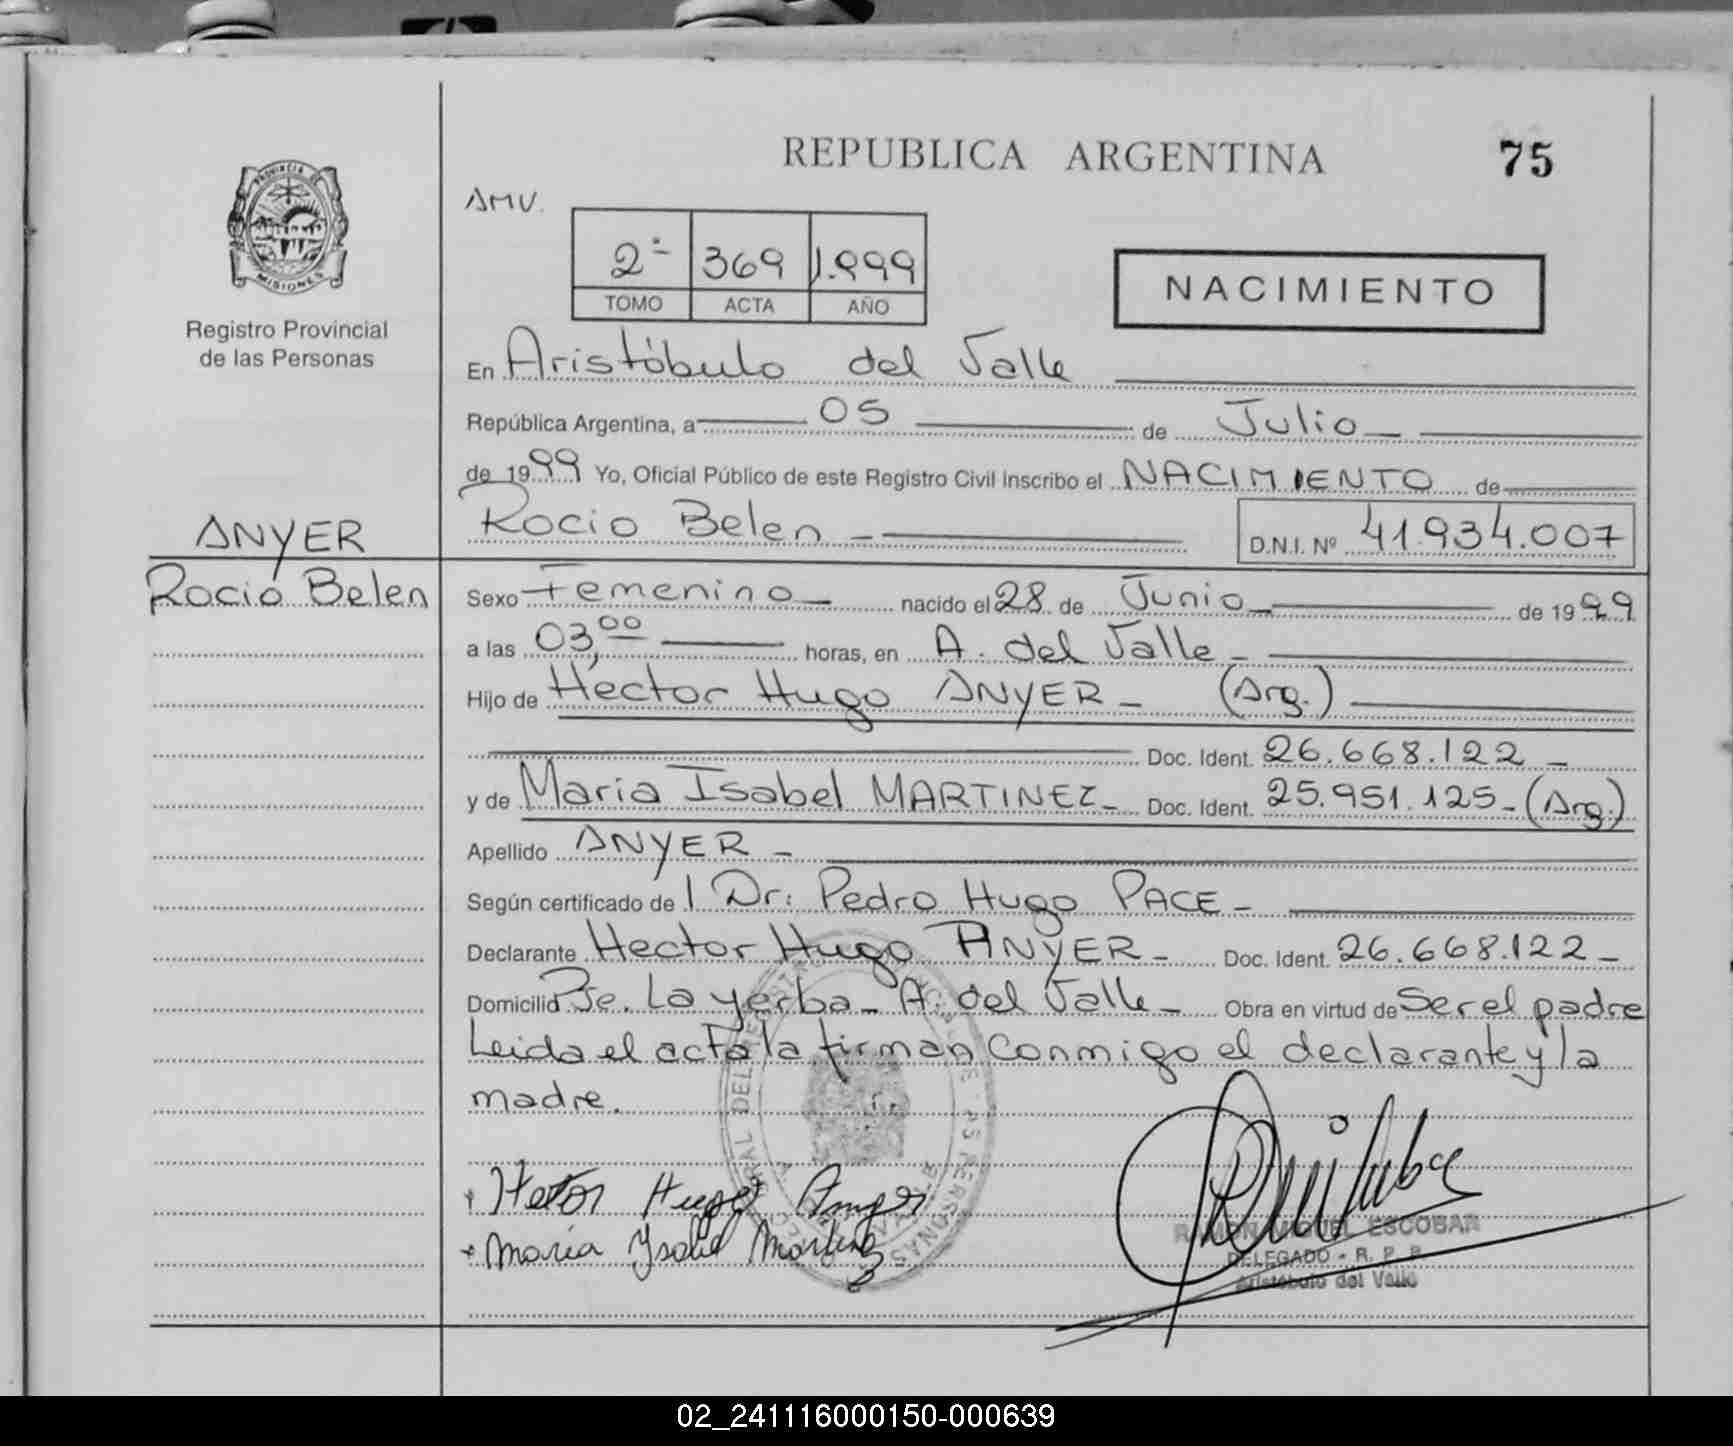 REPUBLICA ARGENTINA
75
AMV.
PROVINCIA DE
MISIONES
Registro Provincial
de las Personas
2- 369 1.999
TOMO ACTA AÑO
NACIMIENTO
En Aristóbulo del Valle
República Argentina, a 05 de Julio
de 1999 Yo, Oficial Público de este Registro Civil Inscribo el NACIMIENTO de
Rocio Belen D.N.I. Nº 41.934.007
ANYER
Rocio Belen
Sexo Femenino nacido el 28 de Junio de 1999
a las 03,00 horas, en A. del Valle
Hijo de Hector Hugo ANYER - (Arg.)
Doc. Ident. 26.668.122
y de Maria Isabel MARTINEZ Doc. Ident. 25.951.125 - (Arg.)
Apellido ANYER
Según certificado de l Dr: Pedro Hugo PACE
Declarante Hector Hugo ANYER Doc. Ident. 26.668.122
Domicilio Pje. La yerba - A. del Valle Obra en virtud de Ser el padre
Leida el acta la firman conmigo el declarante y la
madre.
Hetor Hugo Anyer
Maria Ysabel Martinez
RAMON MIGUEL ESCOBAR
DELEGADO - R. P. P.
Aristóbulo del Valle
02_241116000150-000639